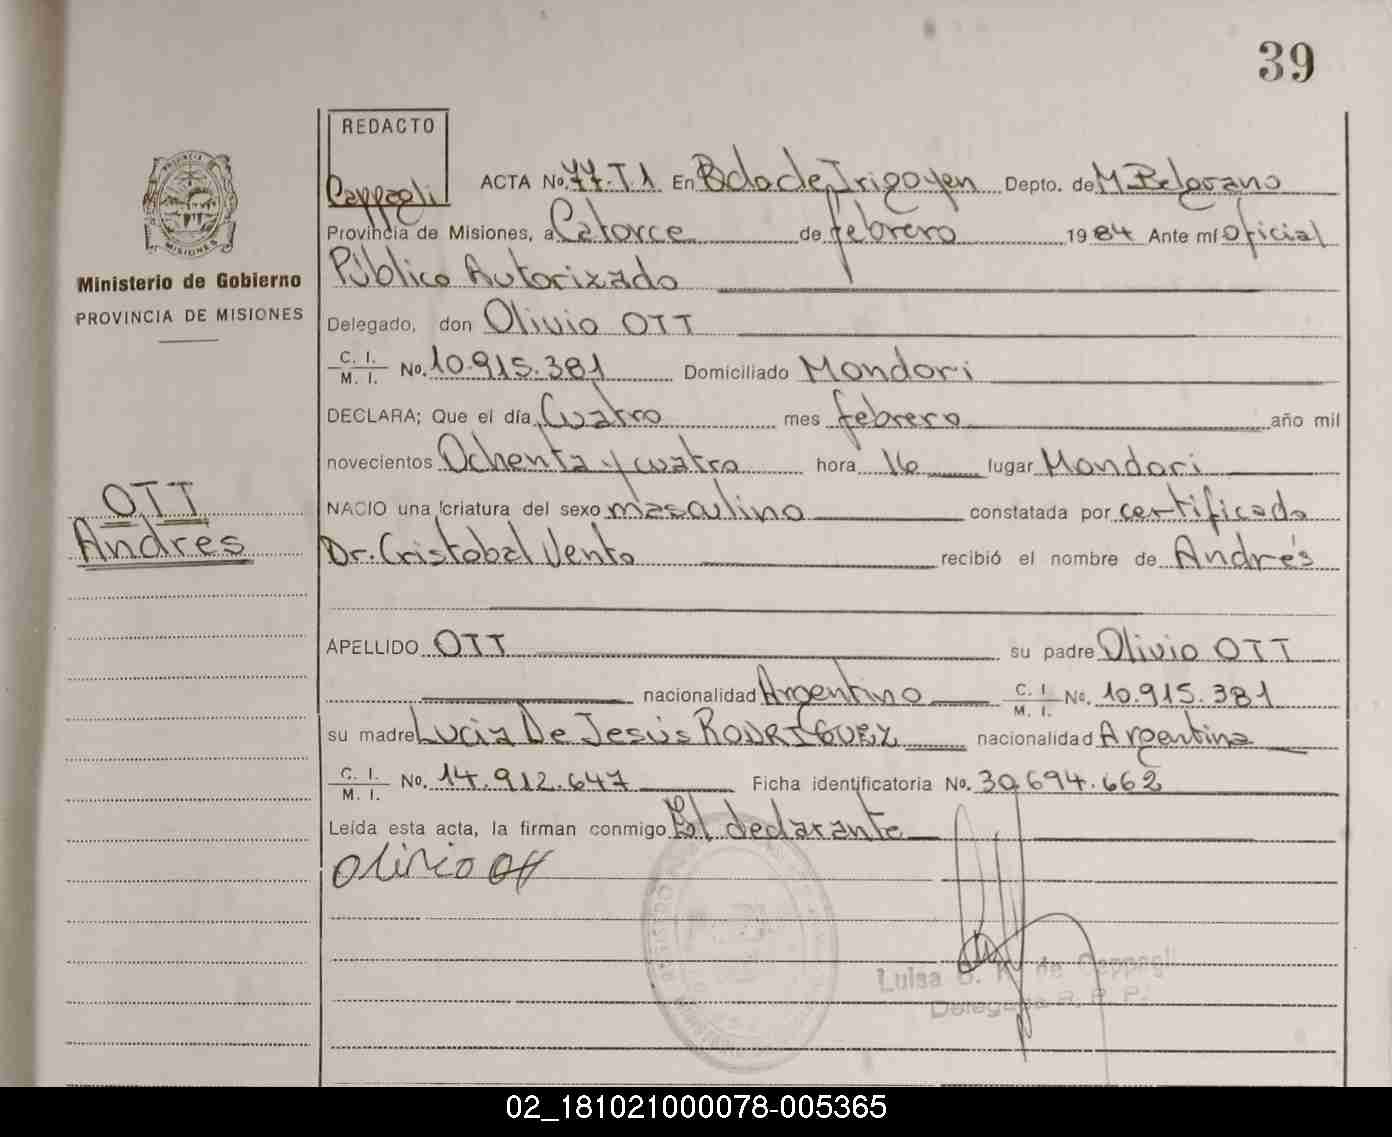 39
REDACTO
Cappagli
ACTA No. 77. T 1 En Bdo de Irigoyen Depto. de M Belgrano
Provincia de Misiones, a Catorce de febrero 1984 Ante mí oficial
Público Autorizado
Delegado, don Olivio OTT
C. I.
M. I. No. 10.915.381 Domiciliado Mondori
DECLARA; Que el día Cuatro mes febrero año mil
novecientos Ochenta y cuatro hora 16 lugar Mondori
NACIO una criatura del sexo masculino constatada por certificado
Dr. Cristobal Vento recibió el nombre de Andrés
APELLIDO OTT su padre Olivio OTT
nacionalidad Argentino C. I. M. I. No. 10.915.381
su madre Lucia De Jesús RODRIGUEZ nacionalidad Argentina
C. I.
M. I. No. 14.912.647 Ficha identificatoria No. 30.694.662
Leída esta acta, la firman conmigo El declarante
Olivio Ott
Luisa G. K. de Cappagli
Delegada R. P. P.
PROVINCIA DE
MISIONES
Ministerio de Gobierno
PROVINCIA DE MISIONES
OTT
Andres
02_181021000078-005365